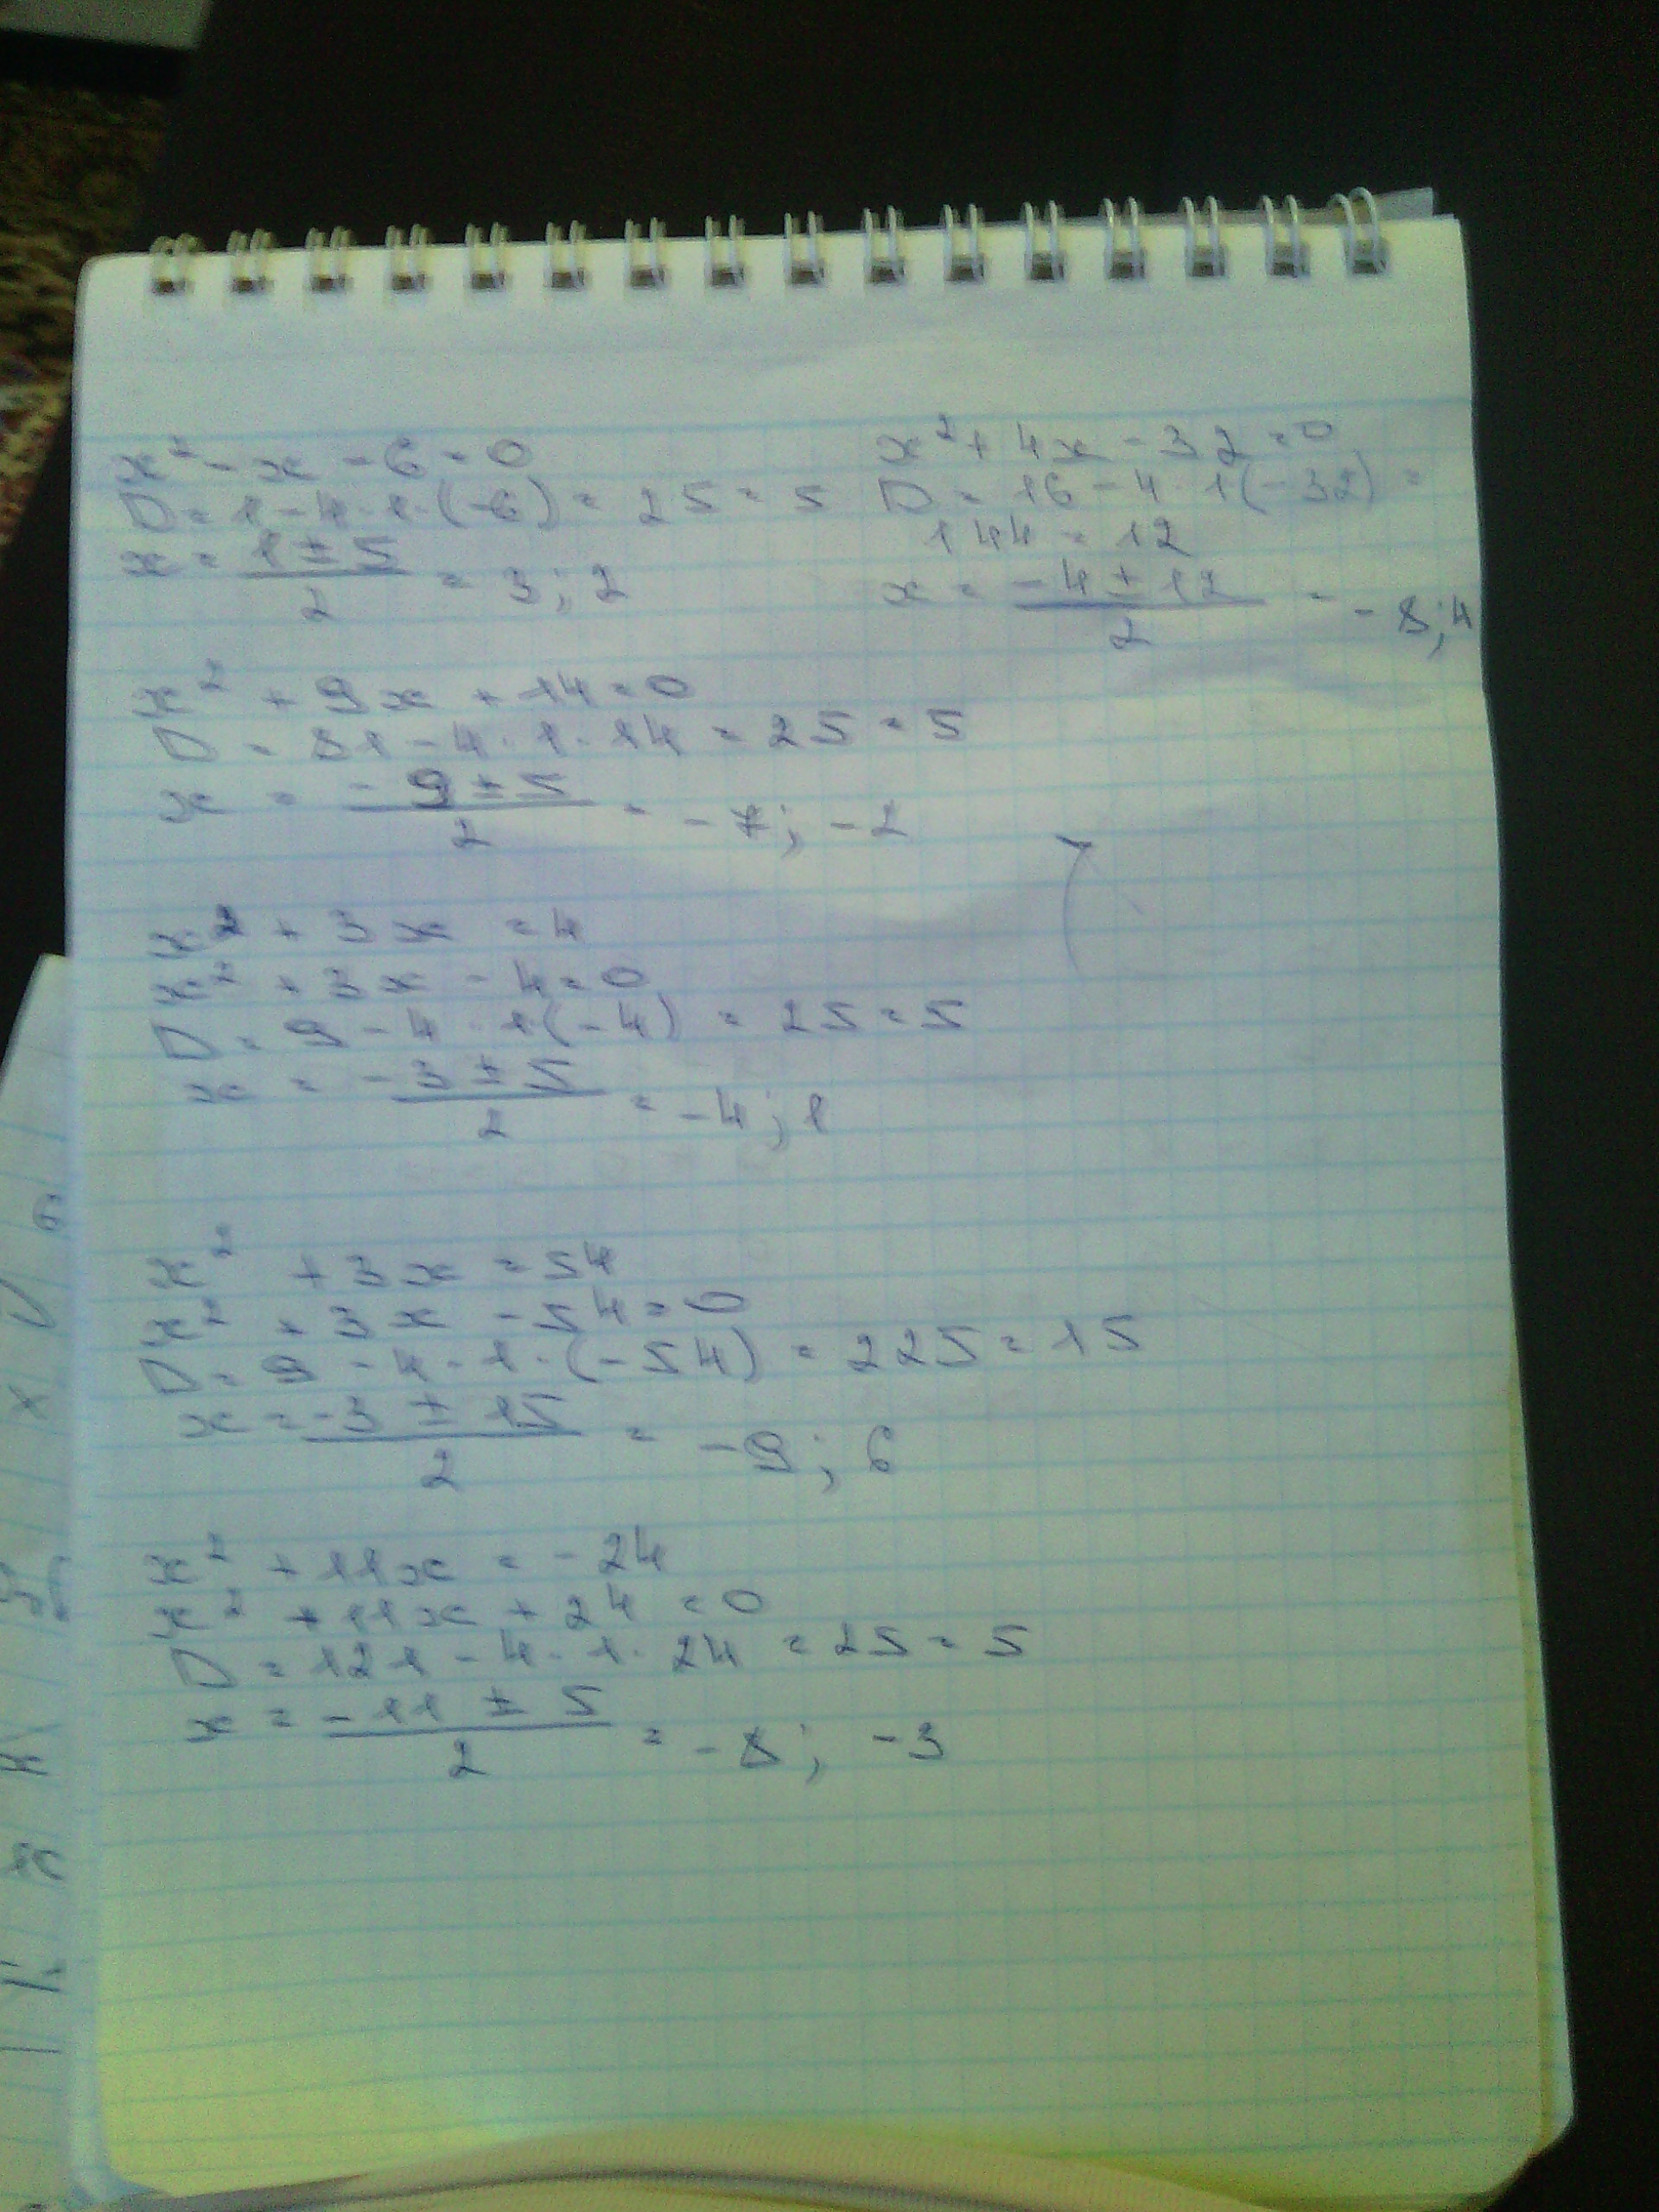 x² - x - 6 = 0
D = 1 - 4 · 1 · (-6) = 25 = 5
x = (1 ± 5) / 2 = 3; 2
x² + 4x - 32 = 0
D = 16 - 4 · 1(-32) =
144 = 12
x = (-4 ± 12) / 2 = -8; 4
x² + 9x + 14 = 0
D = 81 - 4 · 1 · 14 = 25 = 5
x = (-9 ± 5) / 2 = -7; -2
x² + 3x = 4
x² + 3x - 4 = 0
D = 9 - 4 · 1·(-4) = 25 = 5
x = (-3 ± 5) / 2 = -4; 1
x² + 3x = 54
x² + 3x - 54 = 0
D = 9 - 4 · 1 · (-54) = 225 = 15
x = (-3 ± 15) / 2 = -9; 6
x² + 11x = -24
x² + 11x + 24 = 0
D = 121 - 4 · 1 · 24 = 25 = 5
x = (-11 ± 5) / 2 = -8; -3